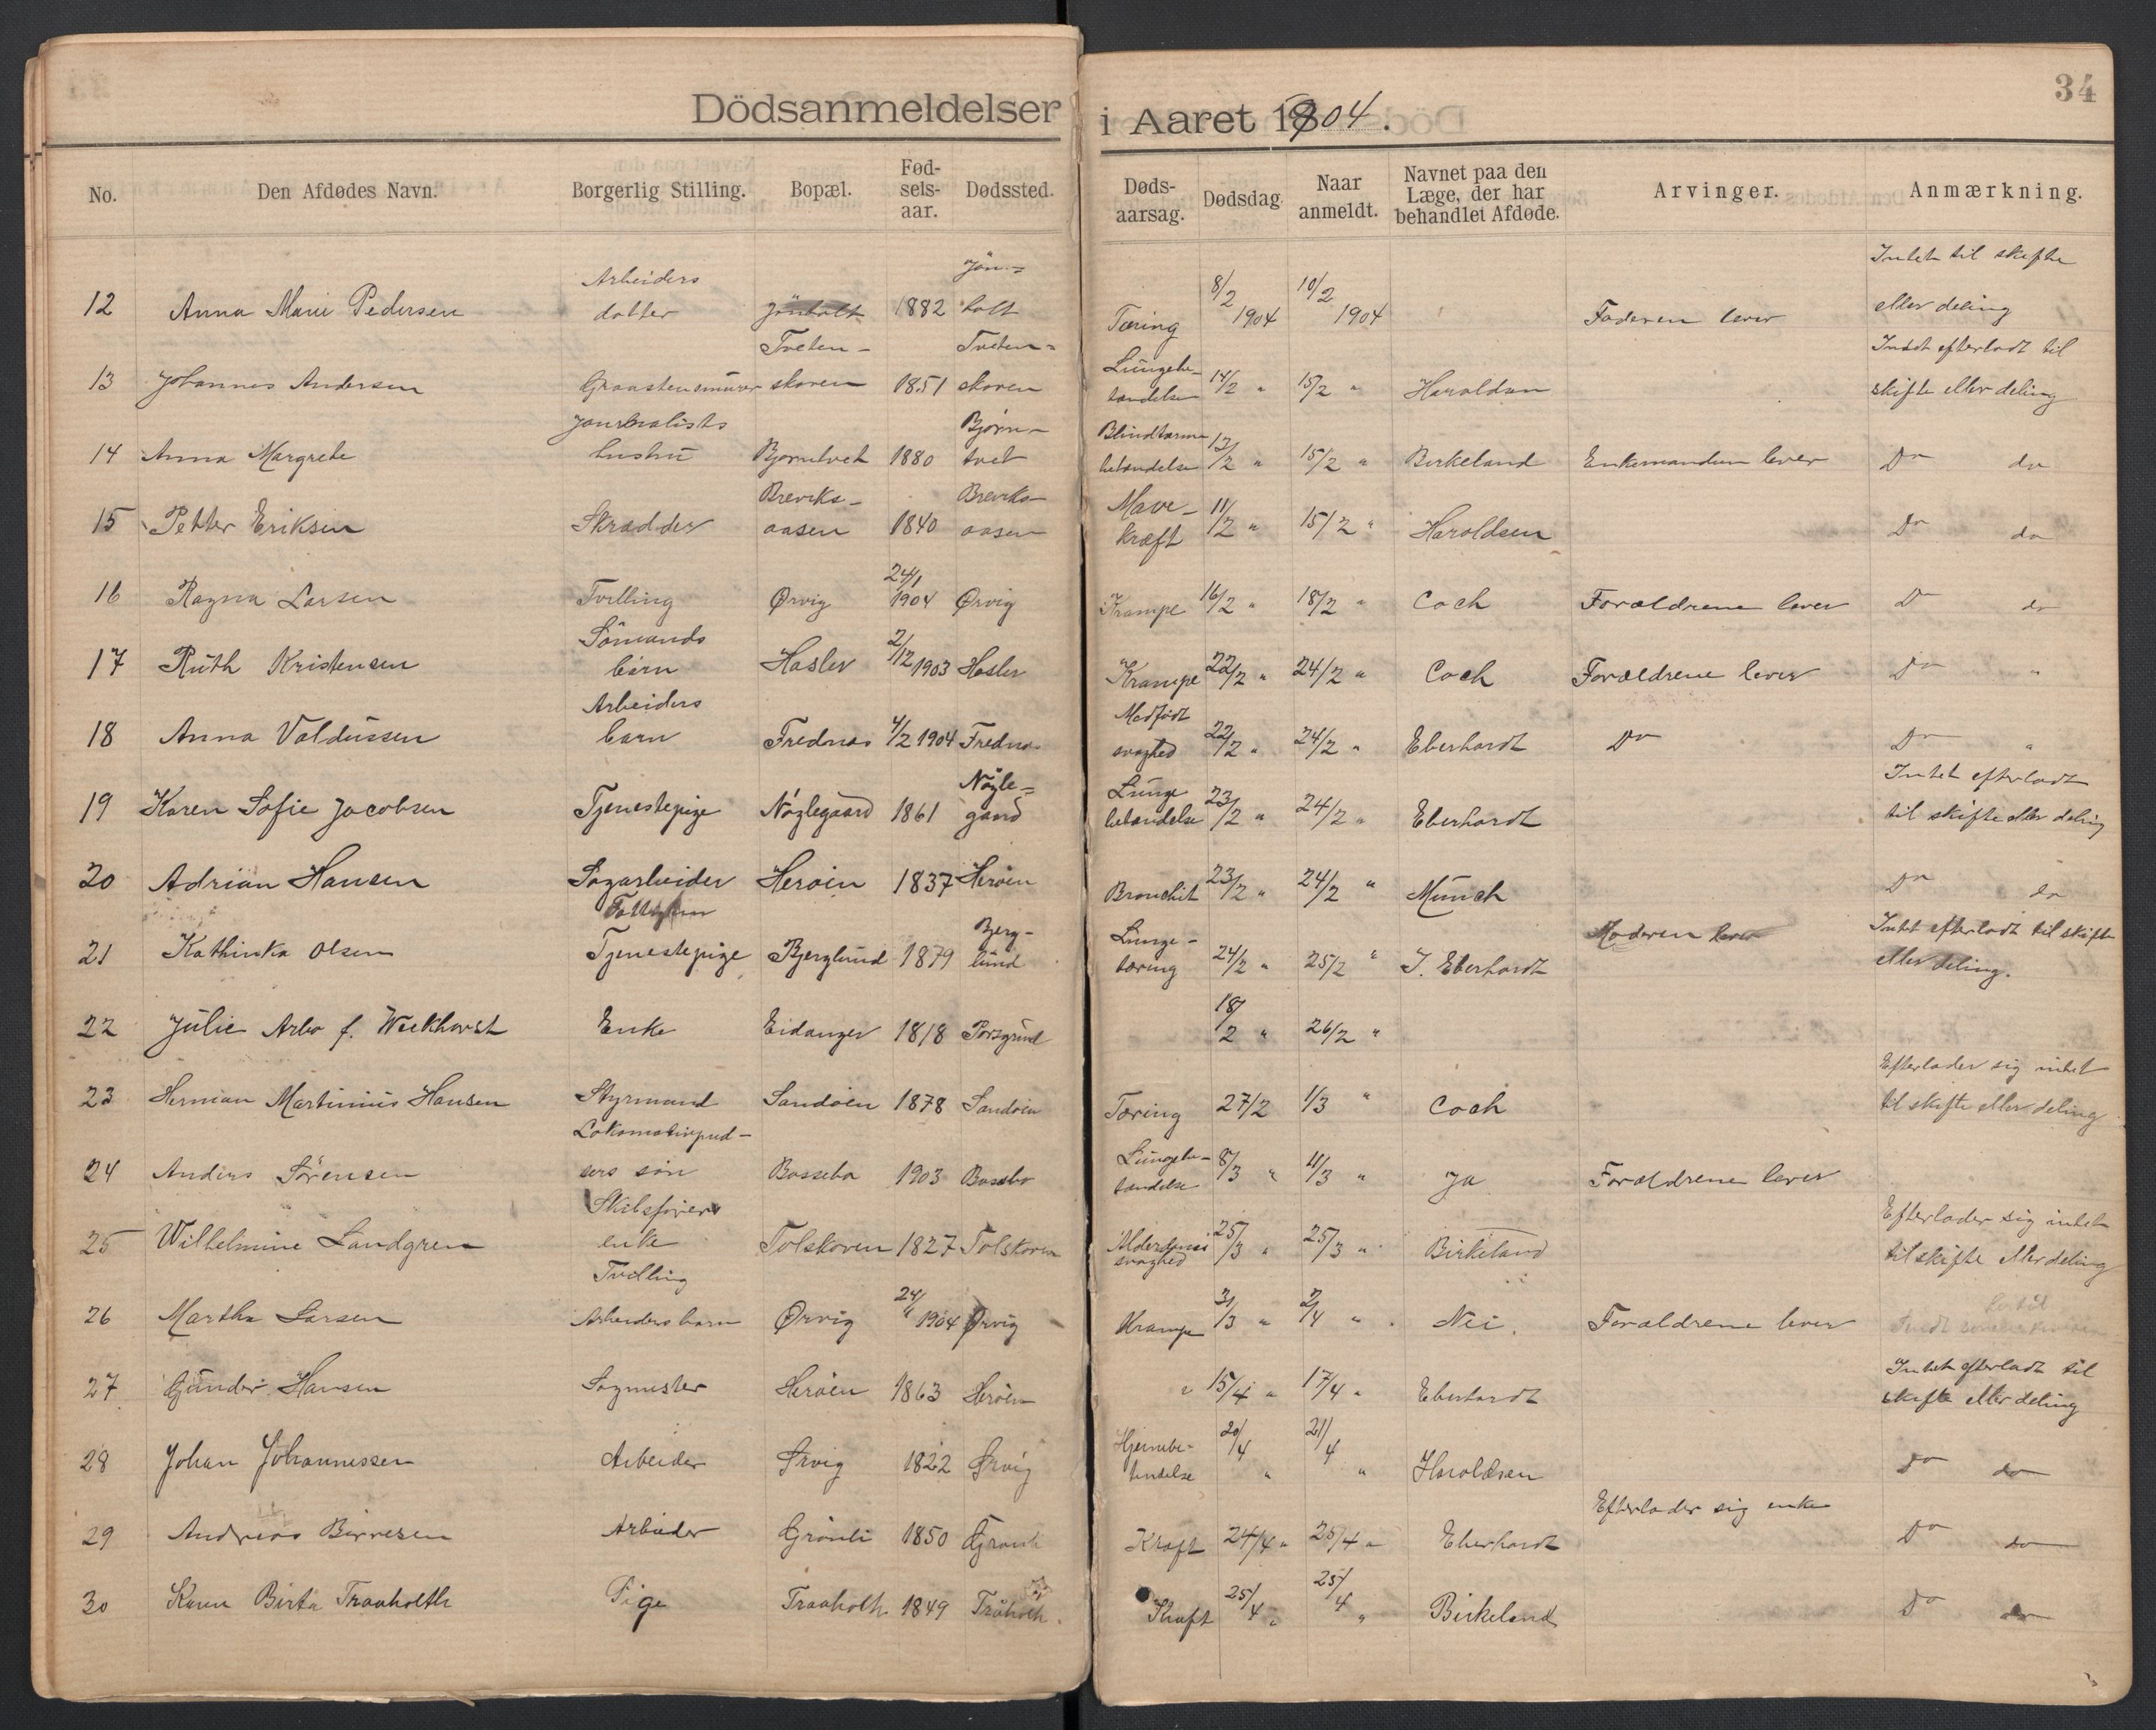 34
Dödsanmeldelser i Aaret 1904.
No. Den Afdødes Navn. Borgerlig Stilling. Bopæl. Fød-sels-aar. Dødssted. Døds-aarsag. Dødsdag Naar anmeldt. Navnet paa den Læge, der har behandlet Afdøde. Arvinger. Anmærkning.
12 Anna Marie Pedersen Arbeiders datter Jönholt 1882 Jön=holt Tæring 8/2 1904 10/2 1904 Faderen lever Intet til skifte eller deling
13 Johannes Andersen Graastensmurer Tveten-skoven 1851 Tveten=skoven Lungebe-tændelse 14/2 " 15/2 " Haraldsen Intet efterladt til skifte eller deling
14 Anna Margrete Journalists hustru Bjørntvet 1880 Bjørn-tvet Blindtarmsbetændelse 13/2 " 15/2 " Birkeland Enkemanden lever Do do
15 Petter Eriksen Skrædder Breviks-aasen 1840 Breviks-aasen Mave-kræft 11/2 " 15/2 " Haroldsen Do do
16 Ragna Larsen Tvilling Ørvig 24/1 1904 Ørvig Krampe 16/2 " 18/2 " Coch Forældrene lever Do do
17 Ruth Kristensen Sömands barn Hasler 2/12 1903 Hasler Krampe 22/2 " 24/2 " Coch Forældrene lever Do "
18 Anna Valdussen Arbeiders barn Frednes 4/2 1904 Frednes Medfødt svaghed 22/2 " 24/2 " Eberhardt Do Do "
19 Karen Sofie Jacobsen Tjenestepige Nøglegaard 1861 Nøgle=gaard Lungebetændelse 23/2 " 24/2 " Eberhardt Intet efterladt til skifte eller deling
20 Adrian Hansen Sagarbeider Heröen 1837 Heröen Bronchit 23/2 " 24/2 " Münch Do do
21 Kathinka Olsen Tjenestepige Bjerglund 1879 Bjerg-lund Lunge-tæring 24/2 " 25/2 " J. Eberhardt Moderen lever Intet efterladt til skifte eller deling.
22 Julie Arbo f. Weckhorst Enke Eidanger 1818 Porsgrund 18/2 " 26/2 "
23 Herman Martinius Hansen Styrmand Sandöen 1878 Sandöen Tæring 27/2 1/3 " Coch Efterlader sig intet til skifte eller deling
24 Anders Sörensen Lokomotivpud-sers sön Bassebo 1903 Bassebo Lungebe-tændelse 8/3 " 11/3 " Ja Forældrene lever
25 Wilhelmine Landgren Skibsförers enke Tolskoven 1827 Tolskoven Alderdomssvaghed 25/3 " 25/3 " Birkeland Efterlader sig intet til skifte eller deling
26 Martha Larsen Tvilling Arbeidersbarn Ørvig 24/1 1904 Ørvig Krampe 31/3 " 2/4 " Nei. Forældrene lever
27 Gunder Hansen Sagmester Heröen 1863 Heröen " 15/4 " 17/4 " Eberhardt Intet efterladt til skifte eller deling
28 Johan Johannessen Arbeider Ørvig 1822 Ørvig Hjernebe-tændelse 20/4 " 21/4 " Haroldsen Do do
29 Andreas Börresen Arbeider Grönli 1850 Grönli Kræft 24/4 " 25/4 " Eberhardt Efterlader sig enke Do do
30 Karen Birte Traaholth Pige Traaholth 1849 Traholth. 25/4 " 25/4 " Birkeland Do do